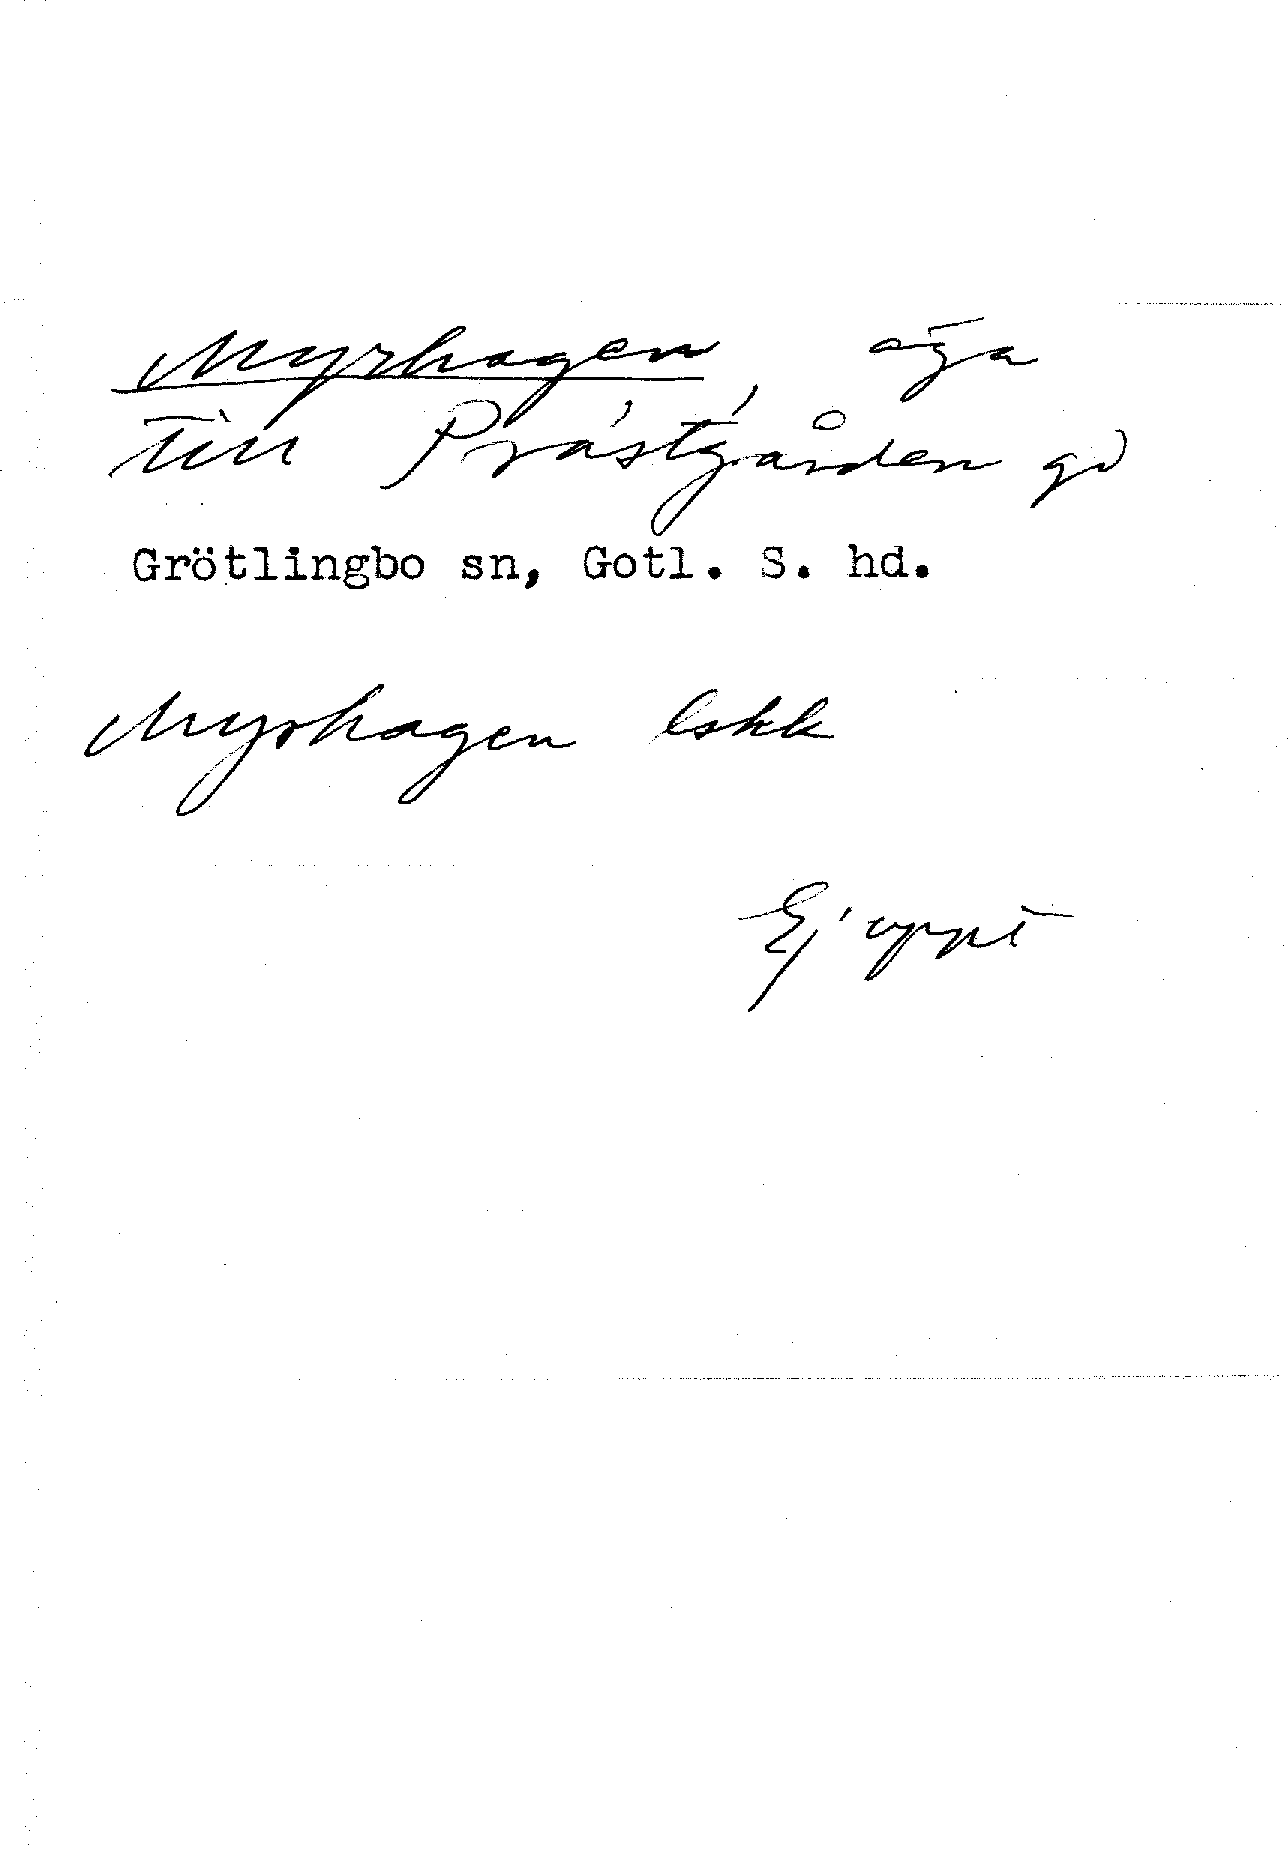 Myrhagen, äga
till Prästgården gd
Grötlingbo sn, Gotl. S. hd.
Myrhagen lskk
Ej uppt